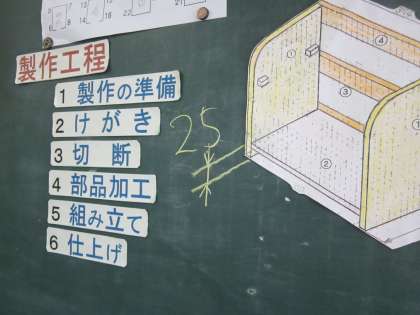 製作工程
1 製作の準備
2 けがき
3 切断
4 部品加工
5 組み立て
6 仕上げ
25
①
④
③
②